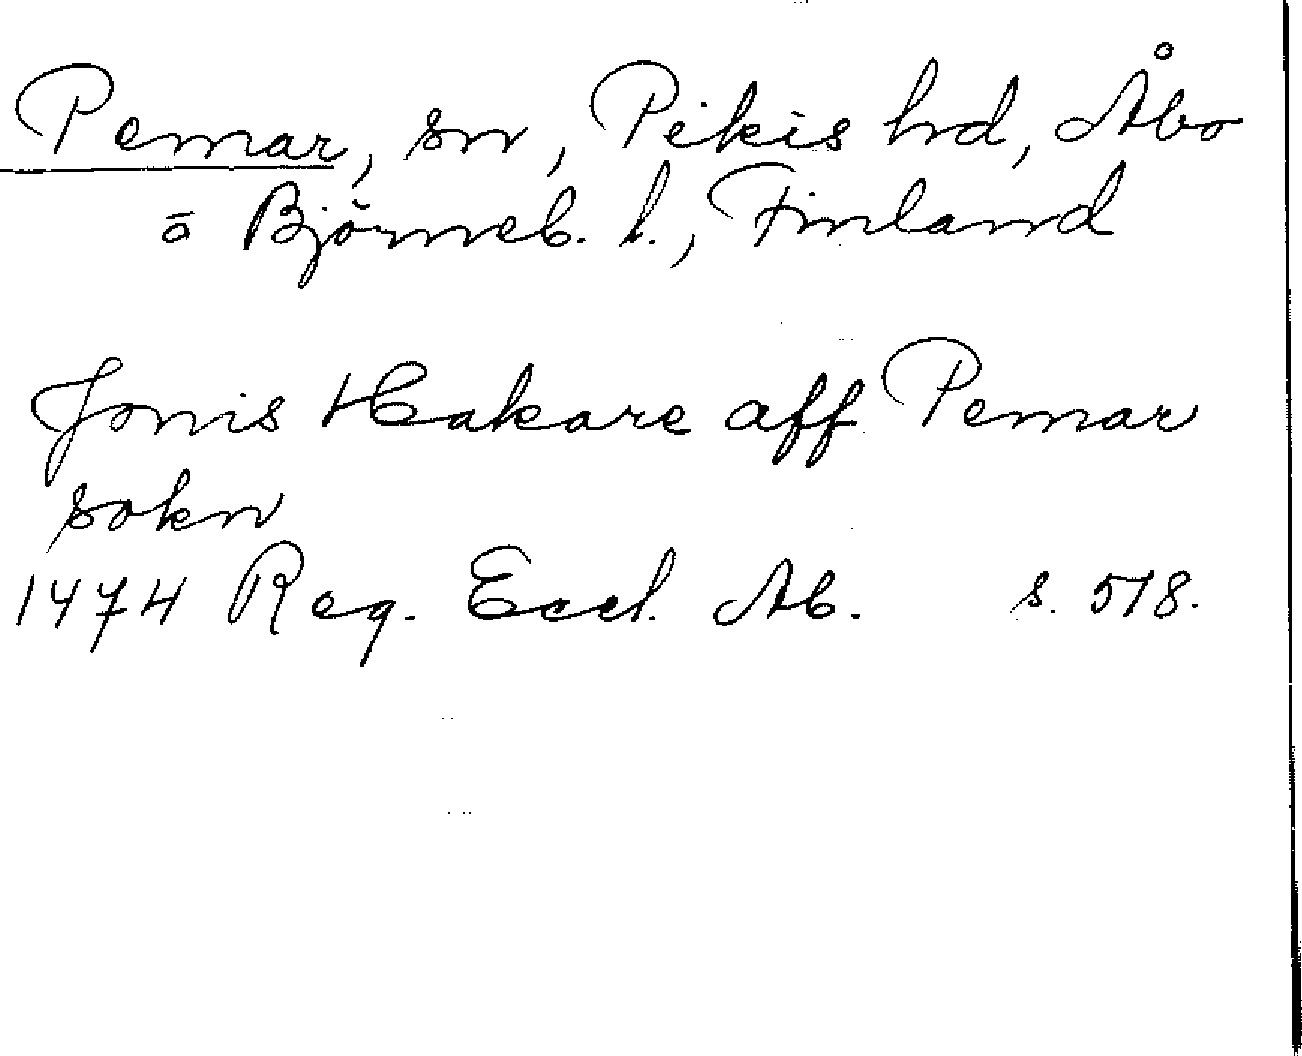 Pemar, sn, Pikis hd, Åbo
o Björneb. l., Finland
Jönis Hakare aff Pemar
sokn
1474 Reg. Eccl. Ab. s. 518.